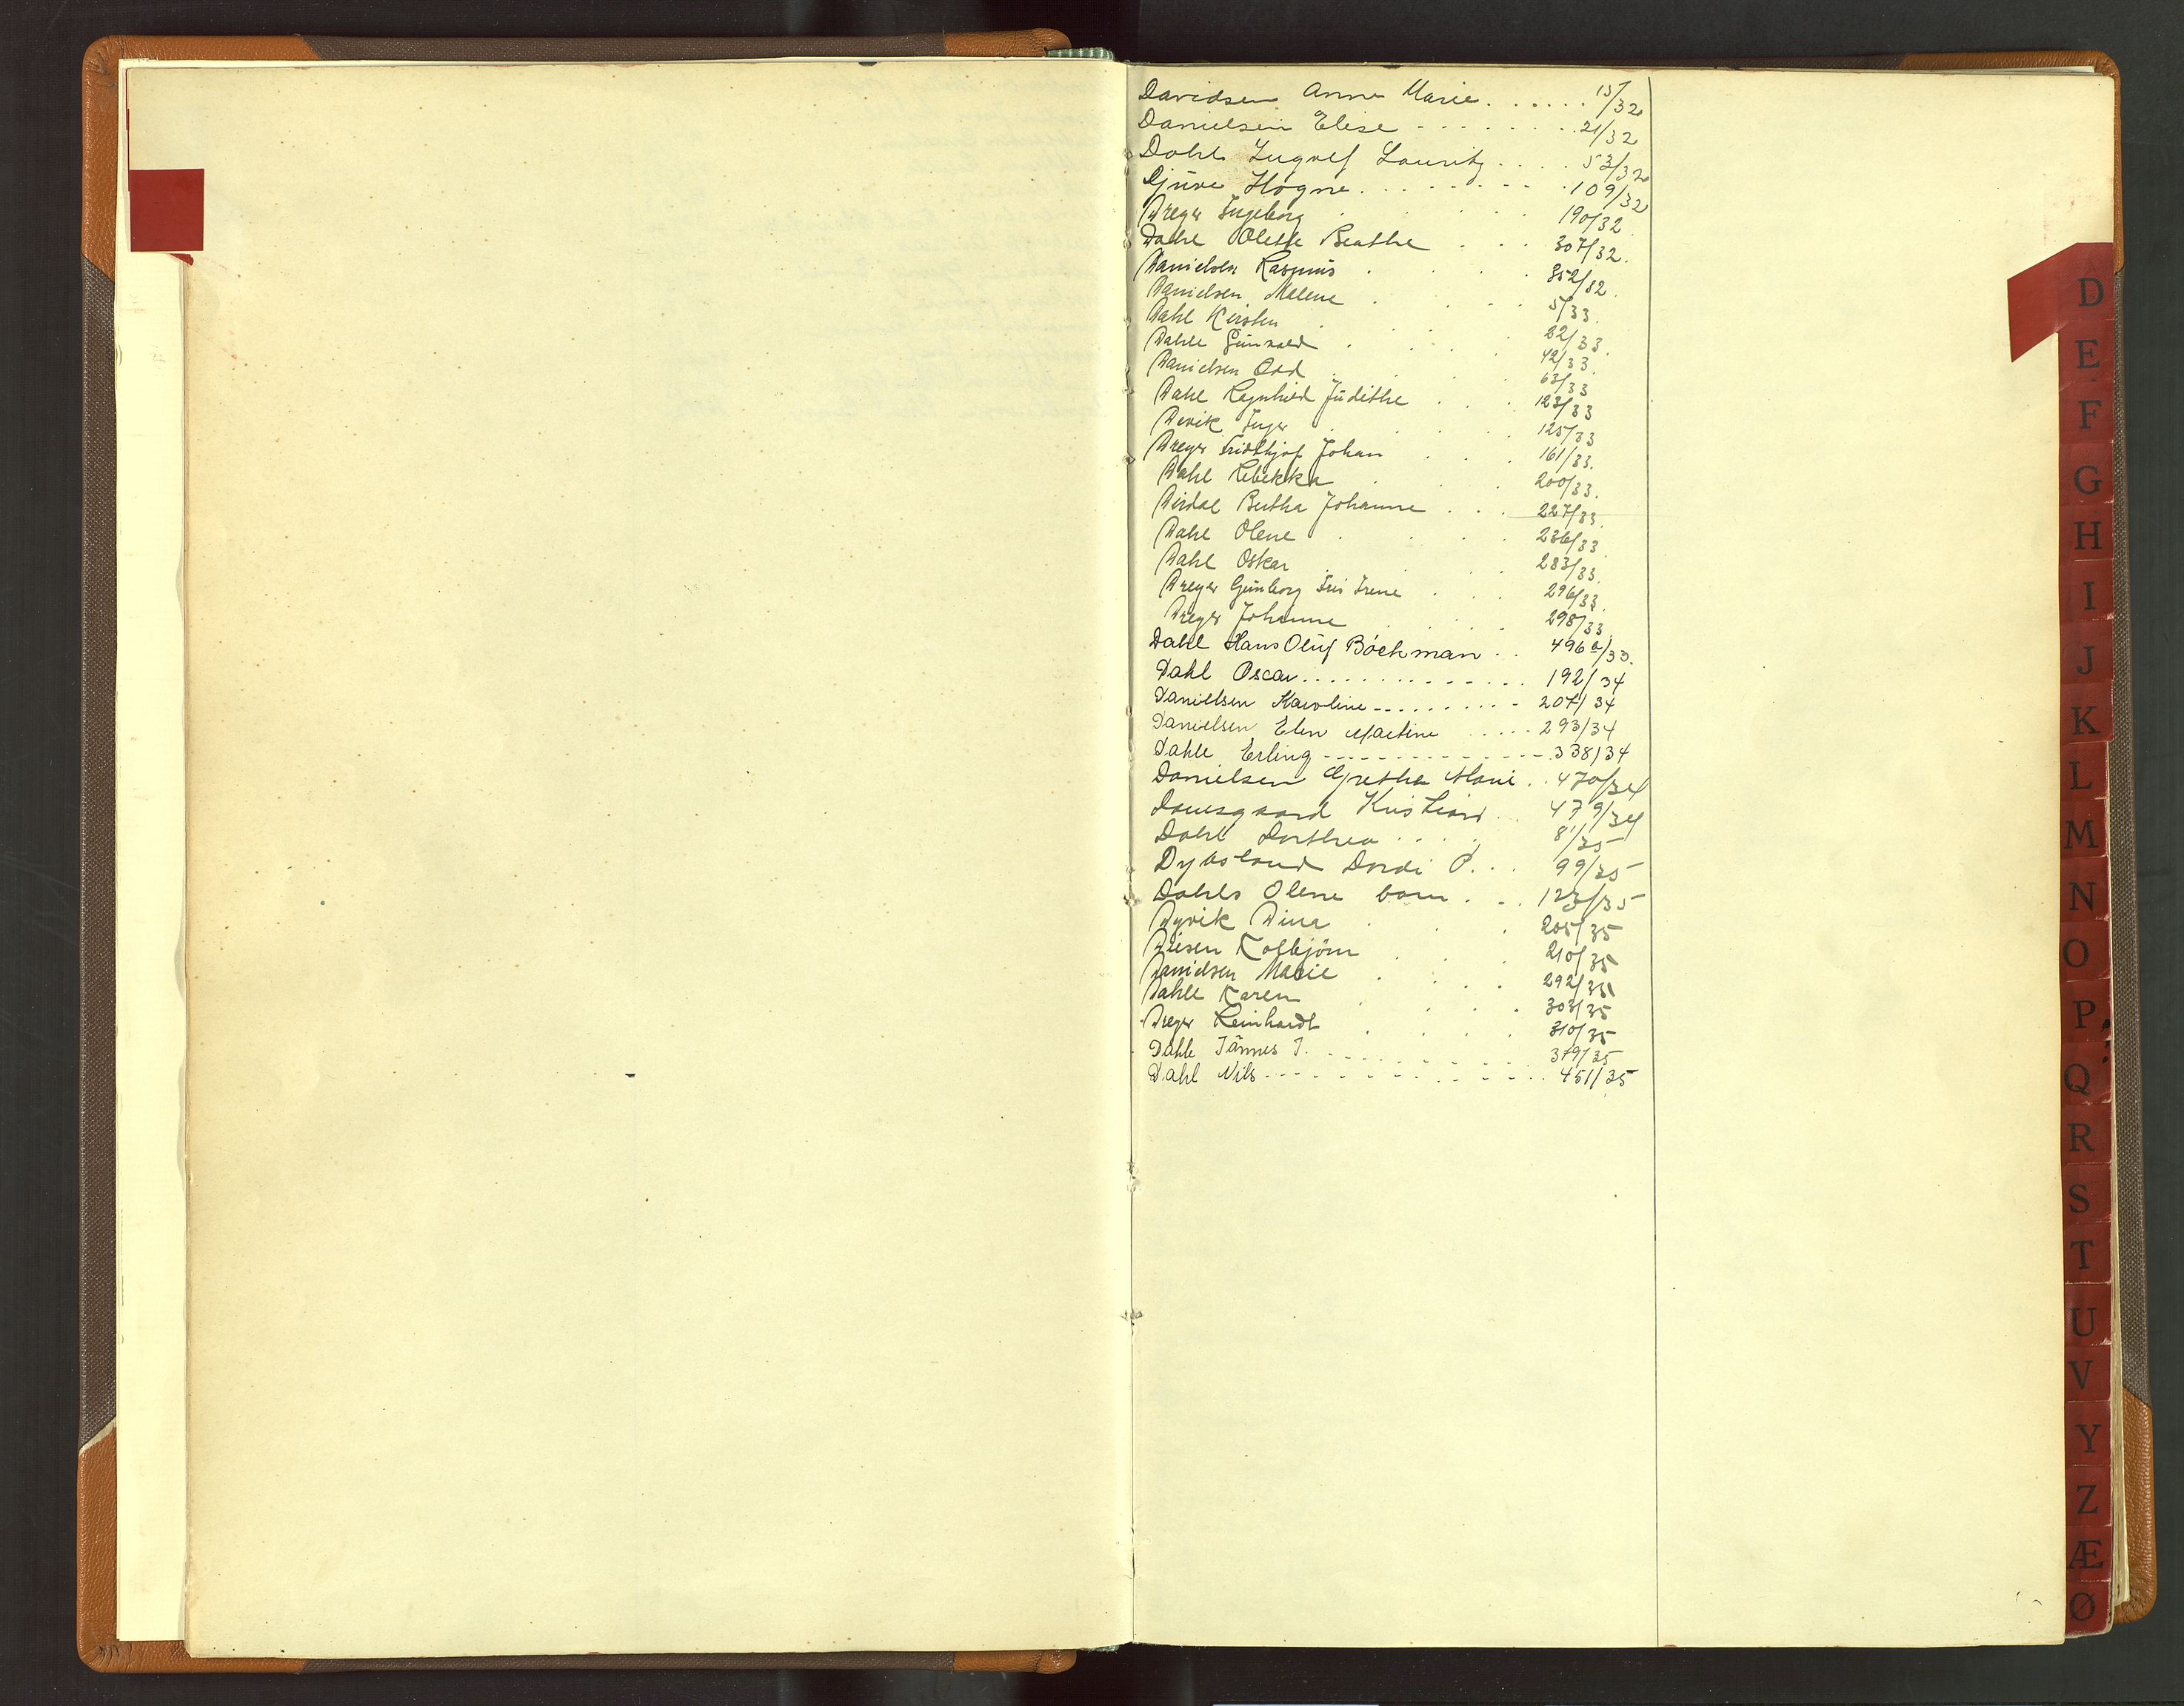 Davidsen Anne Marie . . . . . . 15/32
Danielsen Elise . . . . . . . . 21/32
Dahl Ingvolf Lauritz . . . . 53/32
Djuve Hogne . . . . . . . . . 109/32
Dreyer Ingeborg . . . . 190/32
Dahl Olette Beathe . . . 307/32.
Danielsen Rasmus . . . . 352/32.
Danielsen Malene . . . . 5/33.
Dahl Kirsten . . . . 22/33.
Dahle Gunvald . . . . 42/33.
Danielsen Odd . . . . 63/33
Dahl Ragnhild Judithe . . . 123/33
Devik Inger . . . . 125/33
Dreyer Fridthjof Johan . . . 161/33.
Dahl Rebekka . . . 200/33.
Dirdal Bertha Johanne . . . 227/33.
Dahl Olene . . . . 236/33.
Dahl Oskar . . . 283/33.
Dreyer Gunborg Iris Irene . . . 296/33.
Dreyer Johanne . . . . 298/33.
Dahl Hans Oluf Böckman . . 496a/33.
Dahl Oscar . . . . . . . . . . . . 192/34
Danielsen Karoline . . . . . . . . . 207/34
Danielsen Elen Martine . . . . . 293/34
Dahle Erling . . . . . . . . . . . . . 338/34
Danielsen Grethe Marie . . 470/34
Damsgaard Kristian . . 479/34
Dahl Dorthea . . . . 81/35
Dybsland Dordi P. . . 99/35
Dahls Olene barn . . . 123/35
Dyvik Dina . . . 205/35
Diesen Kolbjörn . . . 210/35
Danielsen Marie . . . . 292/35
Dahle Karen . . . . 303/35
Dreyer Reinhardt . . . . 310/35
Dahle Jânnes J. . . . . . . . . 379/35
Dahl Nils . . . . . . . . . . . . . 451/35
D
E
F
G
H
I
J
K
L
M
N
O
P
Q
R
S
T
U
V
Y
Z
Æ
Ø